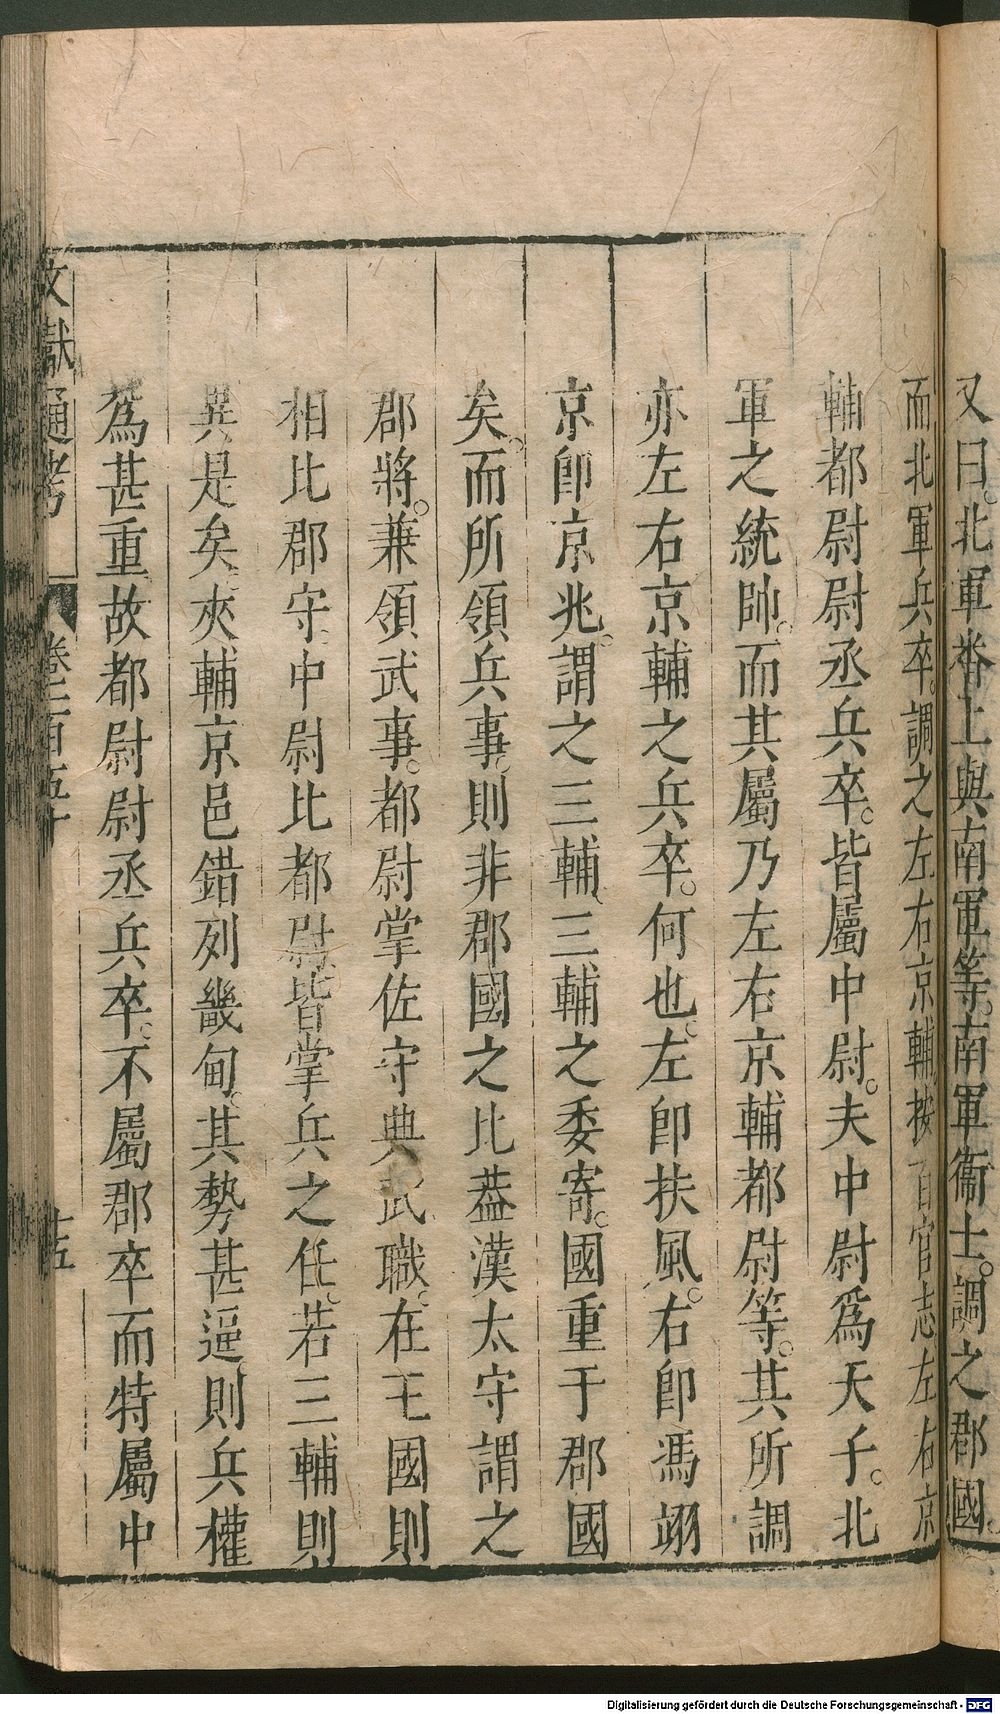 又曰。北軍番上與南軍等。南軍衞士。調之郡國。
而北軍兵卒。調之左右京輔按百官志左右京
輔都尉尉丞兵卒。皆屬中尉。夫中尉爲天子。北
軍之統帥。而其屬乃左右京輔都尉等。其所調
亦左右京輔之兵卒。何也。左卽扶風。右卽馮翊
京卽京兆。謂之三輔。三輔之委寄。國重于郡國
矣。而所領兵事。則非郡國之比葢漢太守謂之
郡將。兼領武事。都尉掌佐守典武職。在王國則
相比郡守。中尉比都尉。皆掌兵之任。若三輔則
異是矣。夾輔京邑錯列畿甸。其勢甚逼則兵權
爲甚重故都尉尉丞兵卒。不屬郡卒而特屬中
文獻通考 卷一百五十 十五
Digitalisierung gefördert durch die Deutsche Forschungsgemeinschaft - DFG